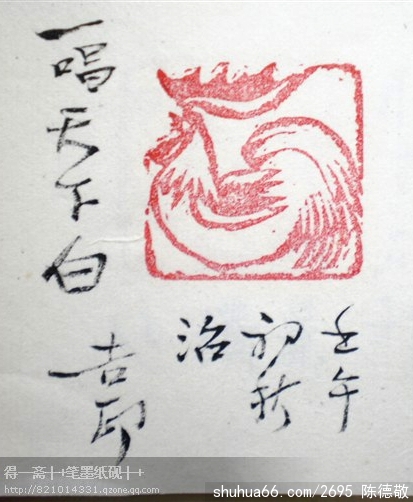 壬午
初秋
治
一唱天下白
吉印
得一斋╋╋笔墨纸砚╋╋
http://821014331.qzone.qq.com
shuhua66.com/2695 陈德敬